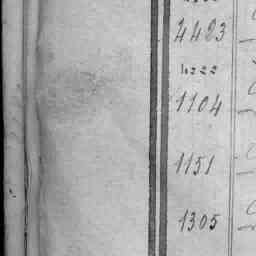 4423
1222
1104
1151
1305